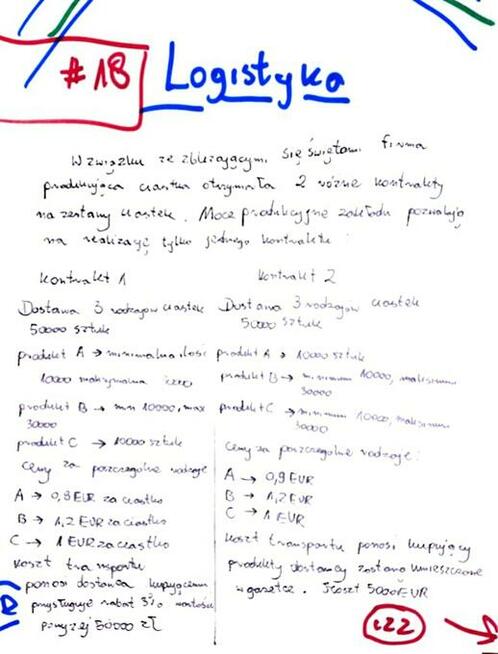 #18 Logistyka
W związku ze zbliżającymi się świętami firma
produkująca ciastka otrzymała 2 różne kontrakty
na zestawy ciastek. Moce produkcyjne zakładu pozwalają
na realizację tylko jednego kontraktu
Kontrakt 1
Dostawa 3 rodzajów ciastek
50000 sztuk
produkt A → minimalna ilość
10000 maksymalna
produkt B → min 10000, max
30000
produkt C → 10000 sztuk
Ceny za poszczególne rodzaje
A → 0,9 EUR za ciastko
B → 1,2 EUR za ciastko
C → 1 EUR za ciastko
Koszt transportu
ponosi dostawca kupującemu
przysługuje rabat 3% wartości
powyżej 50000 zł
Kontrakt 2
Dostawa 3 rodzajów ciastek
50000 sztuk
produkt A → 10000 sztuk
produkt B → minimum 10000, maksimum
30000
produkt C → minimum 10000, maksimum
30000
Ceny za poszczególne rodzaje:
A → 0,9 EUR
B → 1,2 EUR
C → 1 EUR
Koszt transportu ponosi kupujący
produkty dostawcy zostaną umieszczone
w gazetce. Koszt 5000 EUR
c22